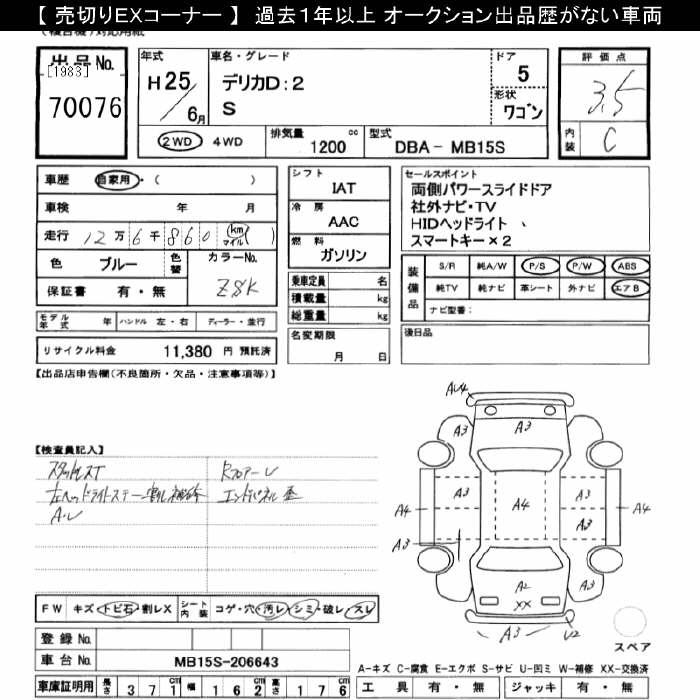 【 売切りEXコーナー 】 過去1年以上 オークション出品歴がない車両
出品 No. 年式 車名・グレード ドア 評価点
[1983] H25 デリカD:2 5 3.5
70076 6月 S 形状 ワゴン 内装 C
2WD 4WD 排気量 1200 cc 型式 DBA－ MB15S
車歴 自家用・( ) シフト IAT セールスポイント
車検 年 月 冷房 AAC 両側パワースライドドア
走行 12万6千860 km マイル ( ) 燃料 ガソリン 社外ナビ・TV
HIDヘッドライト 、
スマートキー×2
色 ブルー 色替 カラーNo. ZSK
保証書 有・無
乗車定員 名
積載量 kg
総重量 kg
装備品 S/R 純A/W P/S P/W ABS
純TV 純ナビ 革シート 外ナビ エアB
ナビ型番：
モデル年式 年 ハンドル 左・右 ディーラー・並行
名変期限 月 日
後日品
リサイクル料金 11,380 円 預託済
【出品店申告欄(不良箇所・欠品・注意事項等)】
【検査員記入】
スタッドレスT RフロアーU
左ヘッドライトステー割れ補修 エンドパネル歪
A・U
AU4
A3
A3 A3
A3 A3
A4 A4 A4
A3 A3
A2
XX
A3 U2
スペア
FW キズ・トビ石・割レX シート内装 コゲ・穴・汚レ・シミ・破レ・スレ
登録 No.
車台 No. MB15S-206643
A-キズ C-腐食 E-エクボ S-サビ U-凹ミ W-補修 XX-交換済
車庫証明用 長さ 3 7 1 cm 幅 1 6 2 cm 高さ 1 7 6 cm 工具 有・無 ジャッキ 有・無